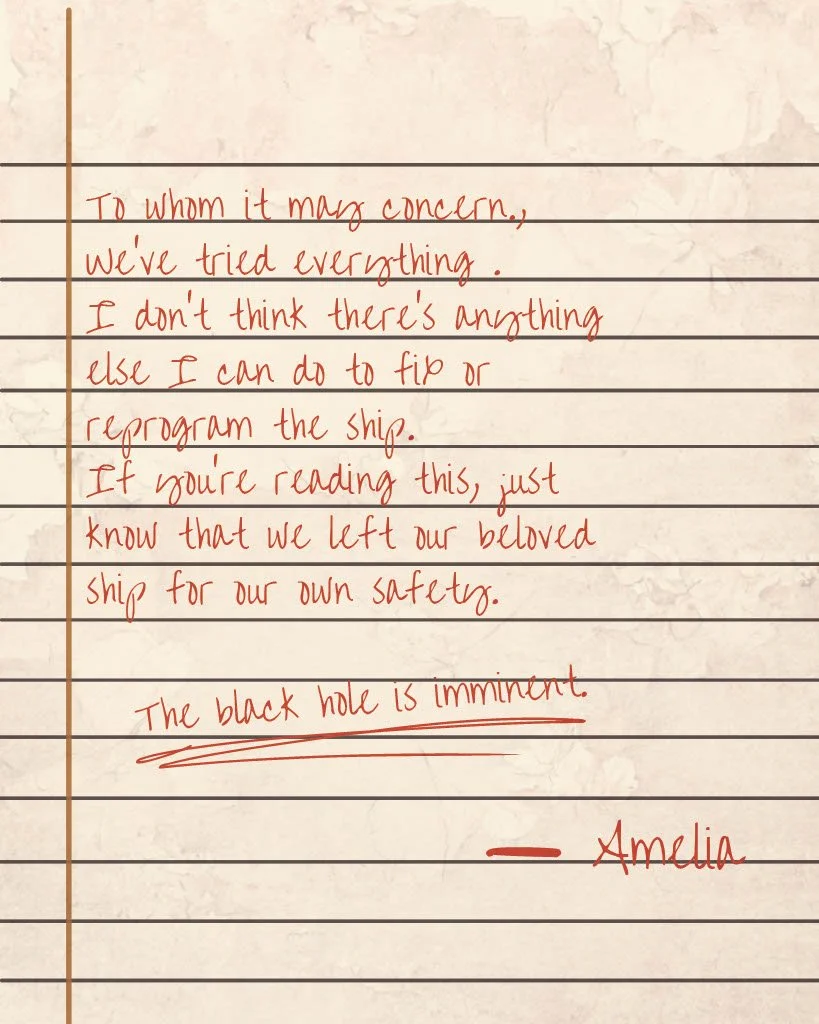 To whom it may concern.,
we've tried everything .
I don't think there's anything
else I can do to fix or
reprogram the ship.
If you're reading this, just
know that we left our beloved
ship for our own safety.
The black hole is imminent.
— Amelia